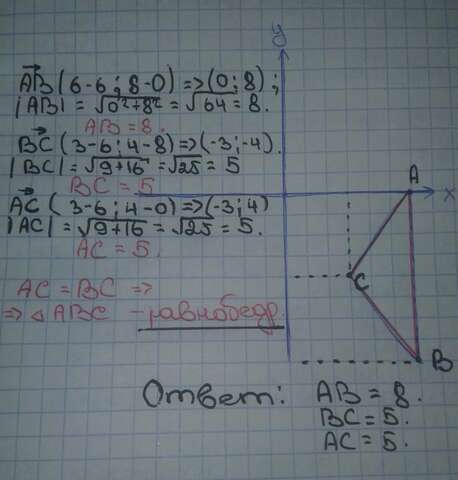 AB (6-6; 8-0) => (0; 8);
|AB| = √0²+8² = √64 = 8.
AB = 8.
BC (3-6; 4-8) => (-3; -4).
|BC| = √9+16 = √25 = 5
BC = 5
AC (3-6; 4-0) => (-3; 4)
|AC| = √9+16 = √25 = 5.
AC = 5.
AC = BC =>
=> ◁ ABC - равнобедр.
y
A
x
C
B
Ответ: AB = 8.
BC = 5.
AC = 5.